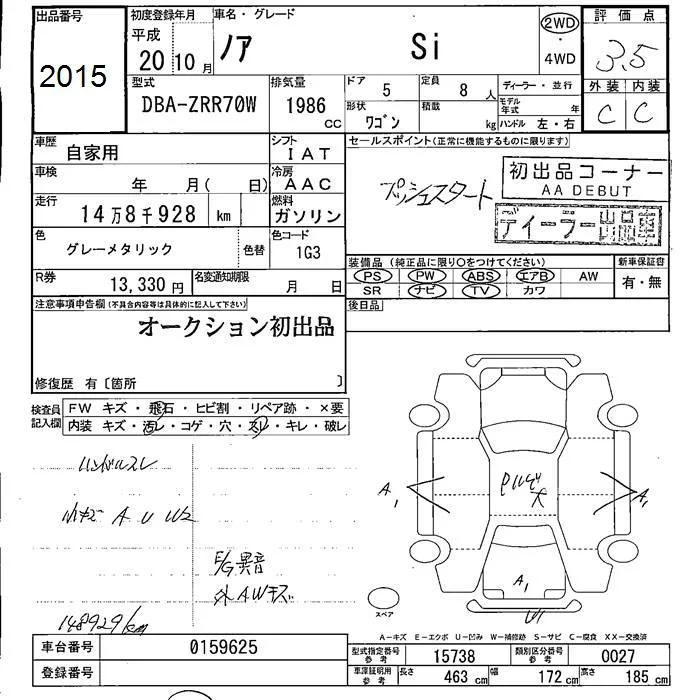 出品番号 初度登録年月 車名・グレード 2WD 評価点
平成
2015 20年10月 ノア Si ・ 4WD 3.5
型式 排気量 ドア 定員 ディーラー・並行 外装 内装
DBA-ZRR70W 1986 CC 5 8人 モデル年式 年 C C
形状 積載 kg ハンドル 左・右
ワゴン
車歴 シフト セールスポイント(正常に機能するものに限ります)
自家用 IAT
車検 冷房 プッシュスタート 初出品コーナー
年 月( 日) AAC AA DEBUT
走行 燃料 ディーラー出品車
14万8千928 km ガソリン
色 色替 色コード
グレーメタリック 1G3
装備品(純正品に限り〇をつけてください) 新車保証書
R券 名変通知期限 PS PW ABS エアB AW 有・無
13,330円 月 日 SR ナビ TV カワ
注意事項申告欄(不具合内容等は具体的に記入して下さい) 後日品
オークション初出品
修復歴 有〔箇所 〕
検査員 FW キズ・飛石・ヒビ割・リペア跡・×要
記入欄 内装 キズ・汚レ・コゲ・穴・スレ・キレ・破レ
ハンドルスレ
小キズ A U W2
A1 A1
E/G異音
外AWキズ
A1
148929km
スペア
A-キズ E-エクボ U-凹み W-補修跡 S-サビ C-腐食 XX-交換済
車台番号 0159625 型式指定番号 参考 15738 類別区分番号 参考 0027
登録番号 車庫証明用 参考 長さ 463 cm 幅 172 cm 高さ 185 cm